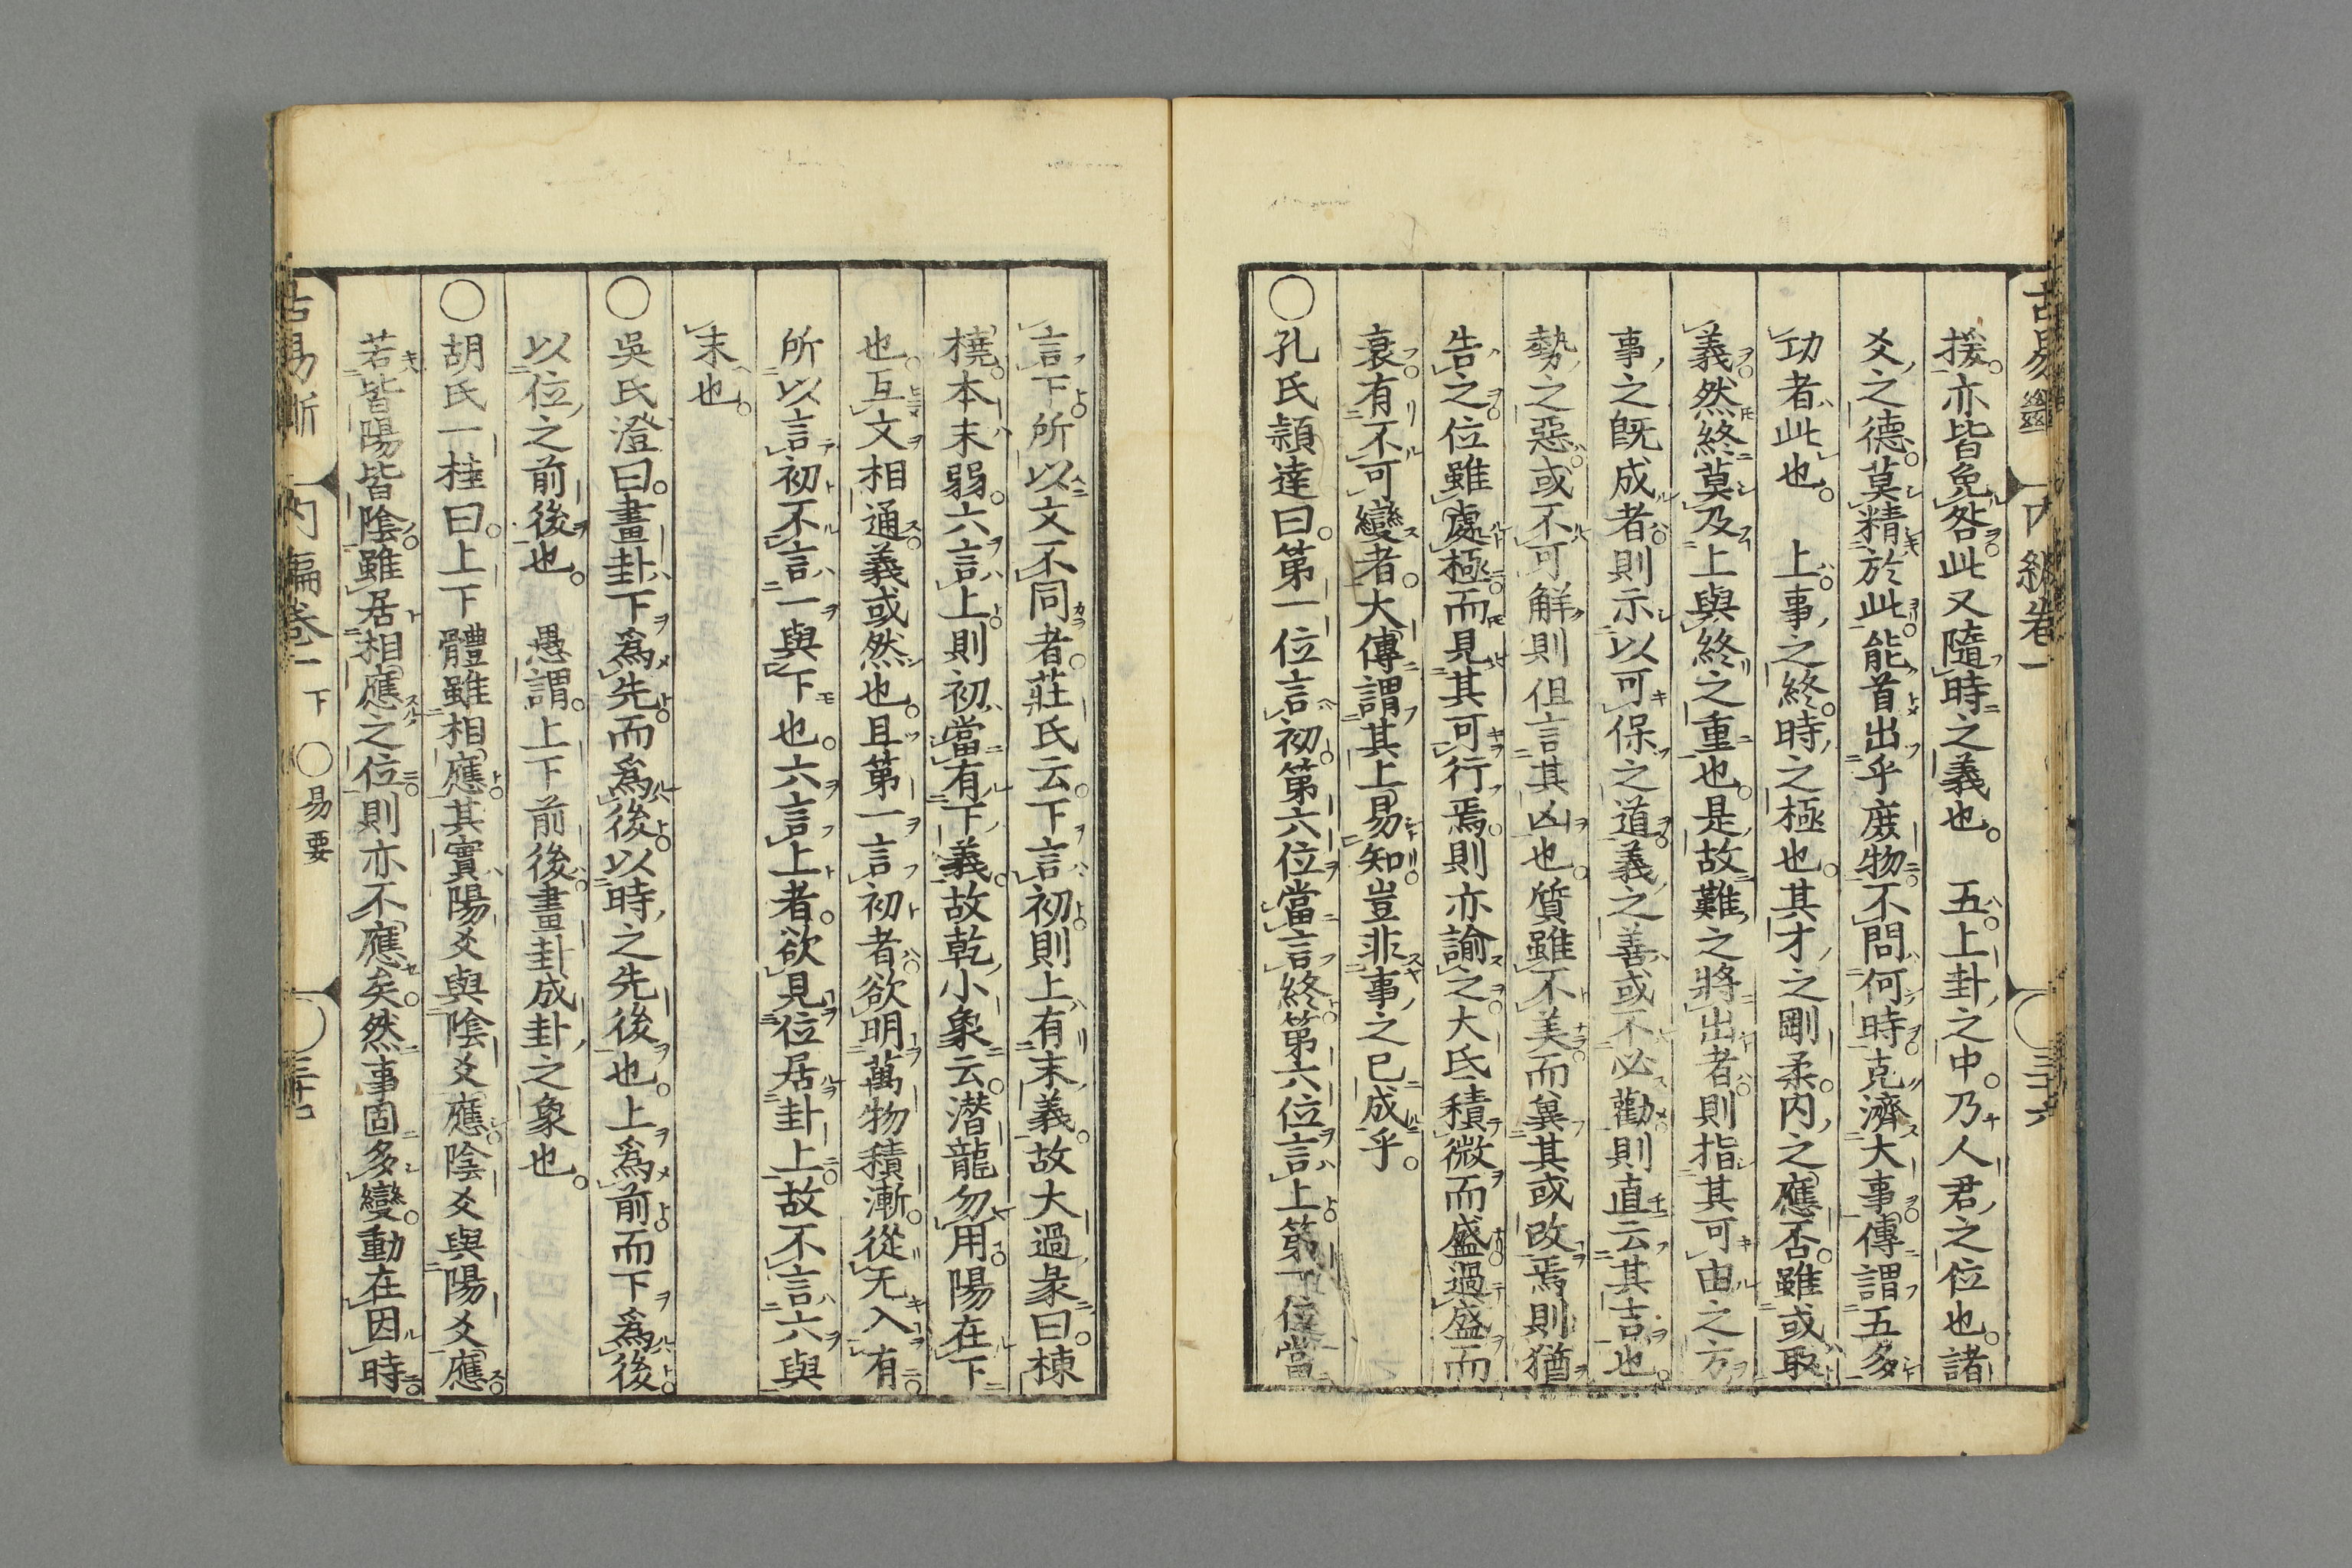 援亦皆免咎此又隨時之義也。　五上卦之中。乃人君之位也。諸
爻之德。莫精於此。能首出乎庶物。不問何時。克濟大事。傳謂五多
功者此也。　上事之終。時之極也。其才之剛柔。内之應否。雖或取
義。然終莫及上與終之重也。是故難之將出者。則指其可由之方
事之既成者。則示以可保之道義之善或不必勸則直云其吉也
勢之惡。或不可解則但言其凶也。質雖不美。而冀其或改焉則猶
告之。位雖處極。而見其可行焉。則亦諭之。大氐積微而盛。過盛而
衰。有不可變者。大傳謂其上易知。豈非事之已成乎。
○孔氏穎達曰。第一位言初。第六位當言終。第六位言上。第一位當
言下。所以文不同者。莊氏云。下言初。則上有末義。故大過彖曰。棟
橈。本末弱。六言上。則初當有下義。故乾小象云。潜龍勿用。陽在下
也。互文相通。義或然也。且第一言初者。欲明萬物積漸。從无入有。
所以言初不言一與下也。六言上者。欲見位居卦上。故不言六與
末也。
○吳氏澄曰。畫卦下爲先。而爲後。以時之先後也。上爲前。而下爲後。
以位之前後也。　愚謂。上下前後。畫卦成卦之象也。
○胡氏一桂曰。上下體雖相應。其實陽爻與陰爻應。陰爻與陽爻應。
若皆陽皆陰。雖居相應之位。則亦不應矣。然事固多變。動在因時。
内編卷一　下　○易要　三十七